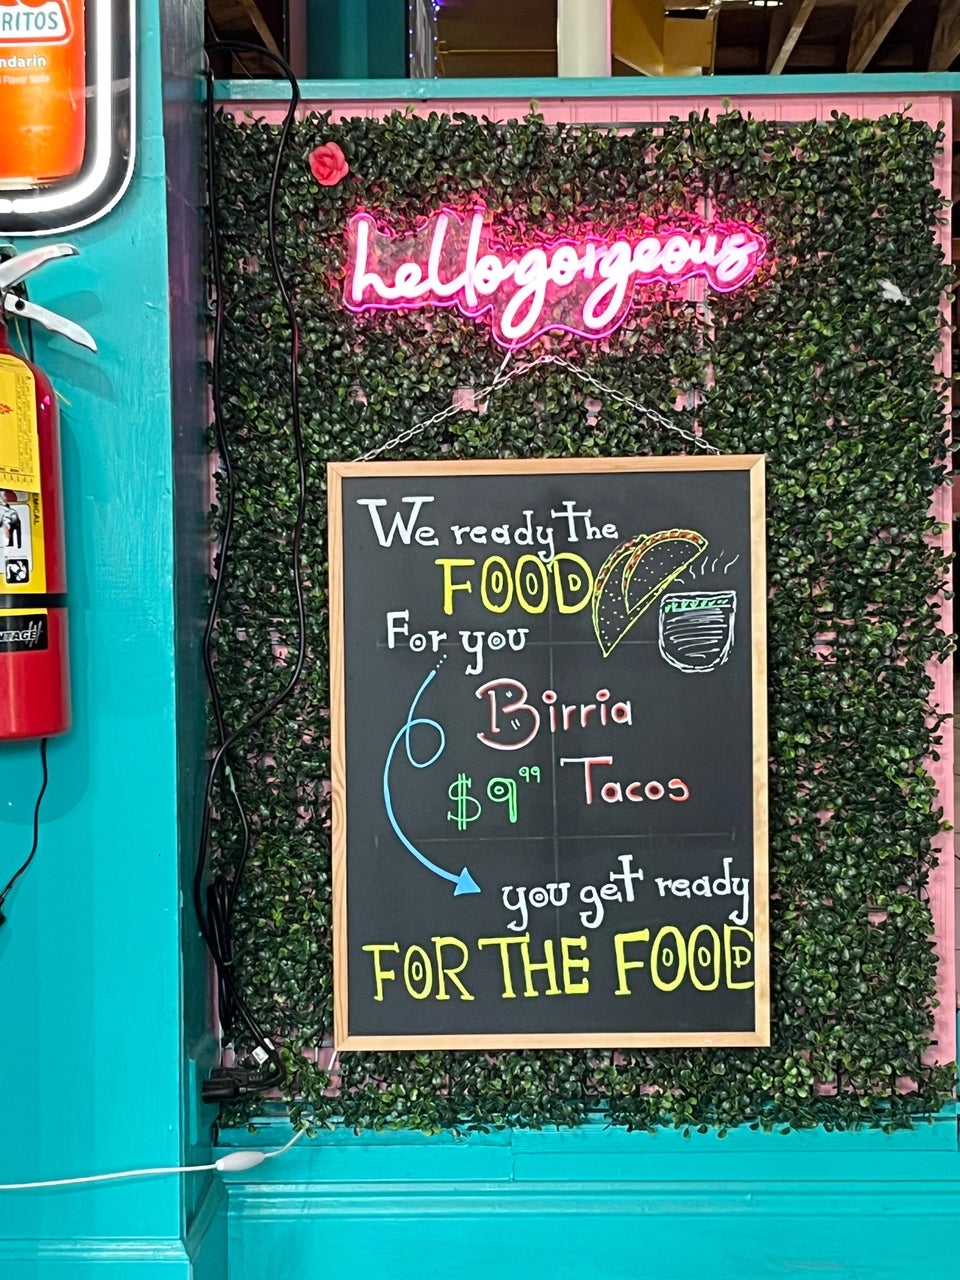 RITOS
ndarin
Flavor Soda
hello gorgeous
We ready The
FOOD
For you
Birria
$9.99 Tacos
you get ready
FOR THE FOOD
EMICAL
NTAGE